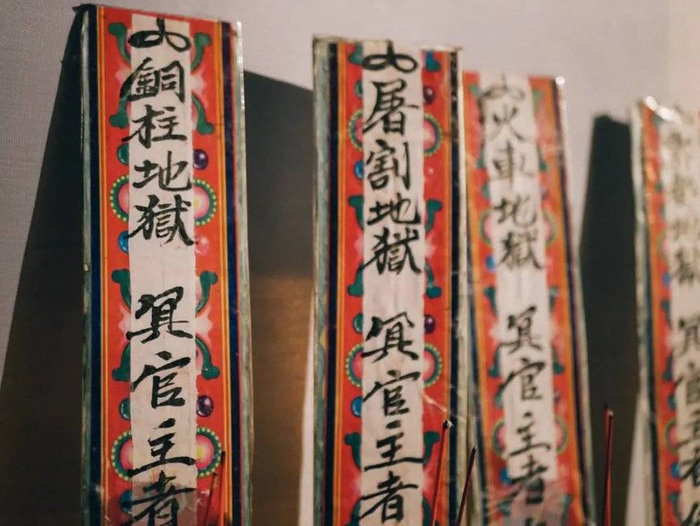 銅柱地獄 冥官主者
屠割地獄 冥官主者
火車地獄 冥官主者